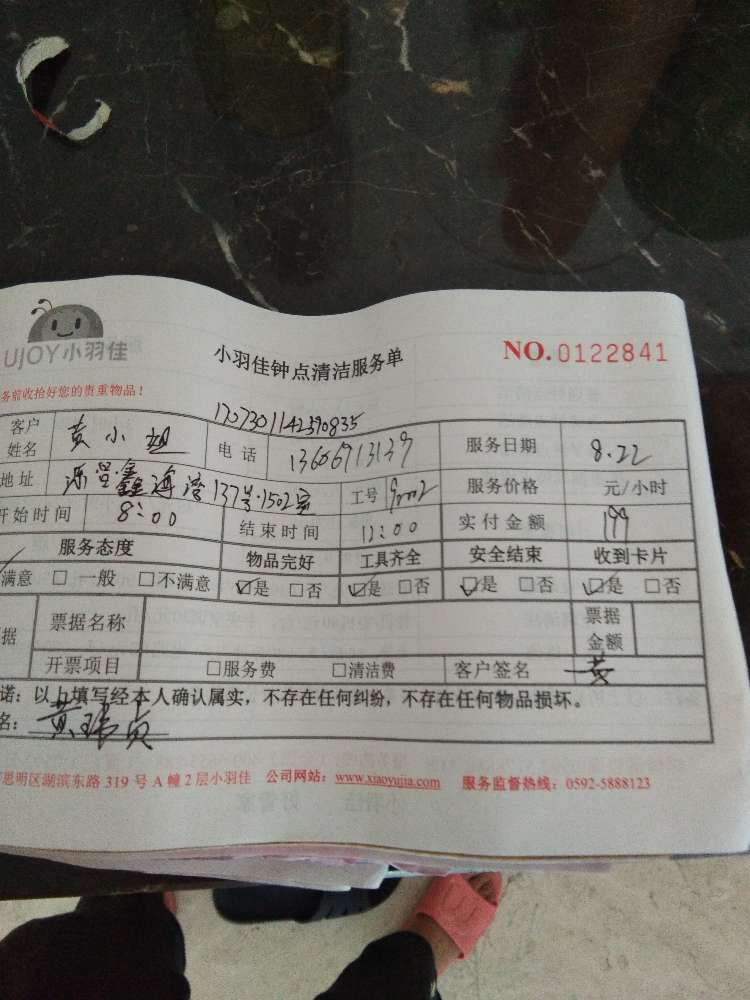 UJOY小羽佳
小羽佳钟点清洁服务单
NO.0122841
务前收拾好您的贵重物品！
客户姓名 黄小姐 电话 13606713139 服务日期 8.22
地址 鑫海湾137号.1502室 工号 服务价格 元/小时
开始时间 8:00 结束时间 12:00 实付金额 199
服务态度 物品完好 工具齐全 安全结束 收到卡片
满意 □一般 □不满意 ☑是 □否 ☑是 □否 ☑是 □否 ☑是 □否
据 票据名称 票据金额
开票项目 □服务费 □清洁费 客户签名 黄
诺：以上填写经本人确认属实，不存在任何纠纷，不存在任何物品损坏。
名：黄玮贞
思明区湖滨东路 319 号 A 幢 2 层小羽佳 公司网站：www.xiaoyujia.com 服务监督热线：0592-5888123